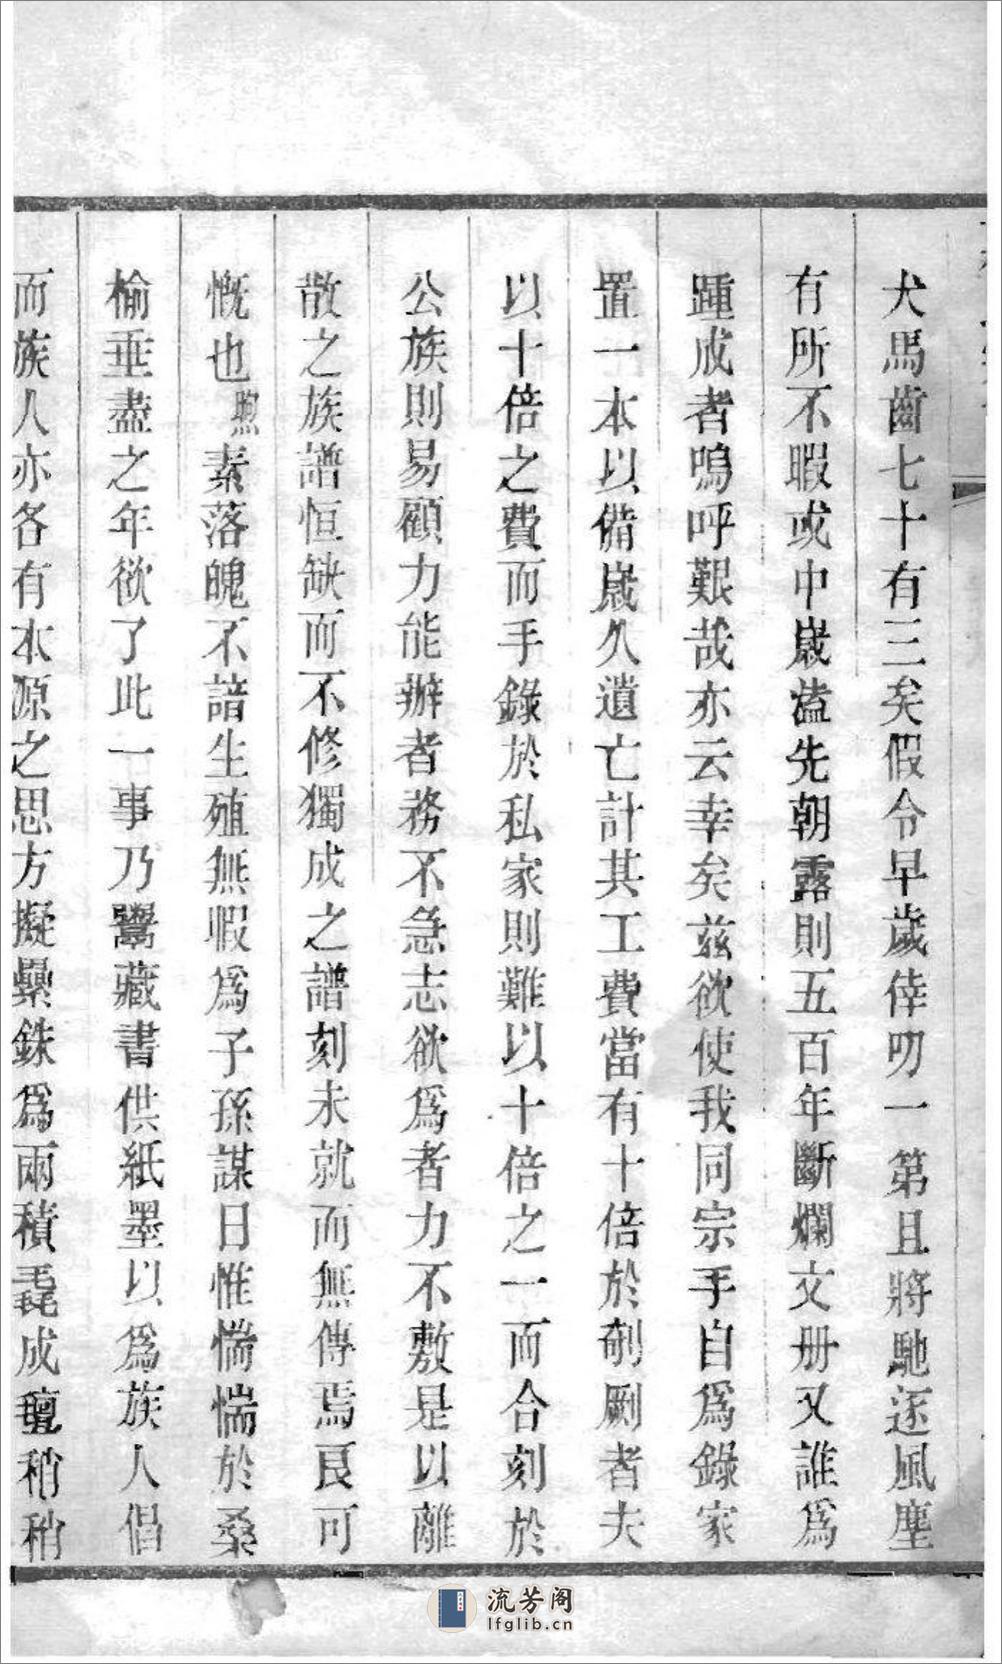 犬馬齒七十有三矣假令早歲倖叨一第且將馳逐風塵
有所不暇或中嵗溘先朝露則五百年斷爛文册又誰爲
踵成者嗚呼艱哉亦云幸矣茲欲使我同宗手自爲錄家
置一本以備嵗久遺亡計其工費當有十倍於剞劂者夫
以十倍之費而手錄於私家則難以十倍之一而合刻於
公族則易顧力能辦者務不急志欲爲者力不敷是以離
散之族譜恒缺而不修獨成之譜刻未就而無傳焉良可
慨也煦素落魄不諳生殖無暇爲子孫謀日惟惴惴於桑
榆垂盡之年欲了此一事乃鬻藏書供紙墨以爲族人倡
而族人亦各有本源之思方擬纍銖爲兩積毳成氊稍稍
流芳阁
lfglib.cn